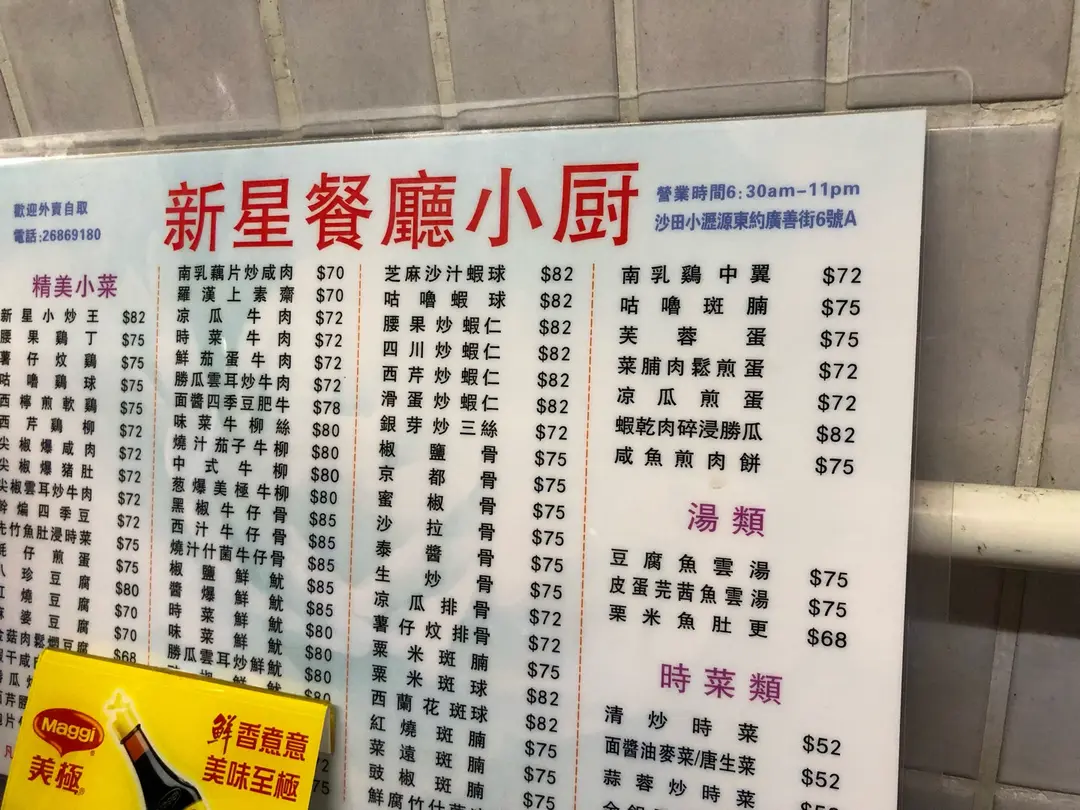 新星餐廳小厨
歡迎外賣自取
電話:26869180
營業時間6:30am-11pm
沙田小瀝源東約廣善街6號A
精美小菜
新星小炒王 $82
腰果鷄丁 $75
薯仔炆鷄 $75
咕嚕鷄球 $75
西檸煎軟鷄 $75
西芹鷄柳 $72
尖椒爆咸肉 $72
尖椒爆猪肚 $72
尖椒雲耳炒牛肉 $72
幹煸四季豆 $72
竹魚肚浸時菜 $75
仔煎蛋 $75
八珍豆腐 $80
紅燒豆腐 $70
麻婆豆腐 $70
菇肉鬆燜豆腐 $68
南乳藕片炒咸肉 $70
羅漢上素齋 $70
凉瓜牛肉 $72
時菜牛肉 $72
鮮茄蛋牛肉 $72
勝瓜雲耳炒牛肉 $72
面醬四季豆肥牛 $78
味菜牛柳絲 $80
燒汁茄子牛柳 $80
中式牛柳 $80
葱爆美極牛柳 $80
黑椒牛仔骨 $85
西汁牛仔骨 $85
燒汁什菌牛仔骨 $85
椒鹽鮮魷 $85
醬爆鮮魷 $85
時菜鮮魷 $80
味菜鮮魷 $80
勝瓜雲耳炒鮮魷 $80
椒鮮魷 $80
芝麻沙汁蝦球 $82
咕嚕蝦球 $82
腰果炒蝦仁 $82
四川炒蝦仁 $82
西芹炒蝦仁 $82
滑蛋炒蝦仁 $82
銀芽炒三絲 $72
椒鹽骨 $75
京都骨 $75
蜜椒骨 $75
沙拉骨 $75
泰醬骨 $75
生炒骨 $75
凉瓜排骨 $72
薯仔炆排骨 $72
粟米斑腩 $75
粟米斑球 $82
西蘭花斑球 $82
紅燒斑腩 $75
菜遠斑腩 $75
豉椒斑腩 $75
鮮腐竹
南乳鷄中翼 $72
咕嚕斑腩 $75
芙蓉蛋 $75
菜脯肉鬆煎蛋 $72
凉瓜煎蛋 $72
蝦乾肉碎浸勝瓜 $82
咸魚煎肉餅 $75
湯類
豆腐魚雲湯 $75
皮蛋芫茜魚雲湯 $75
栗米魚肚更 $68
時菜類
清炒時菜 $52
面醬油麥菜/唐生菜 $52
蒜蓉炒時菜
Maggi
美極
鮮香煮意
美味至極